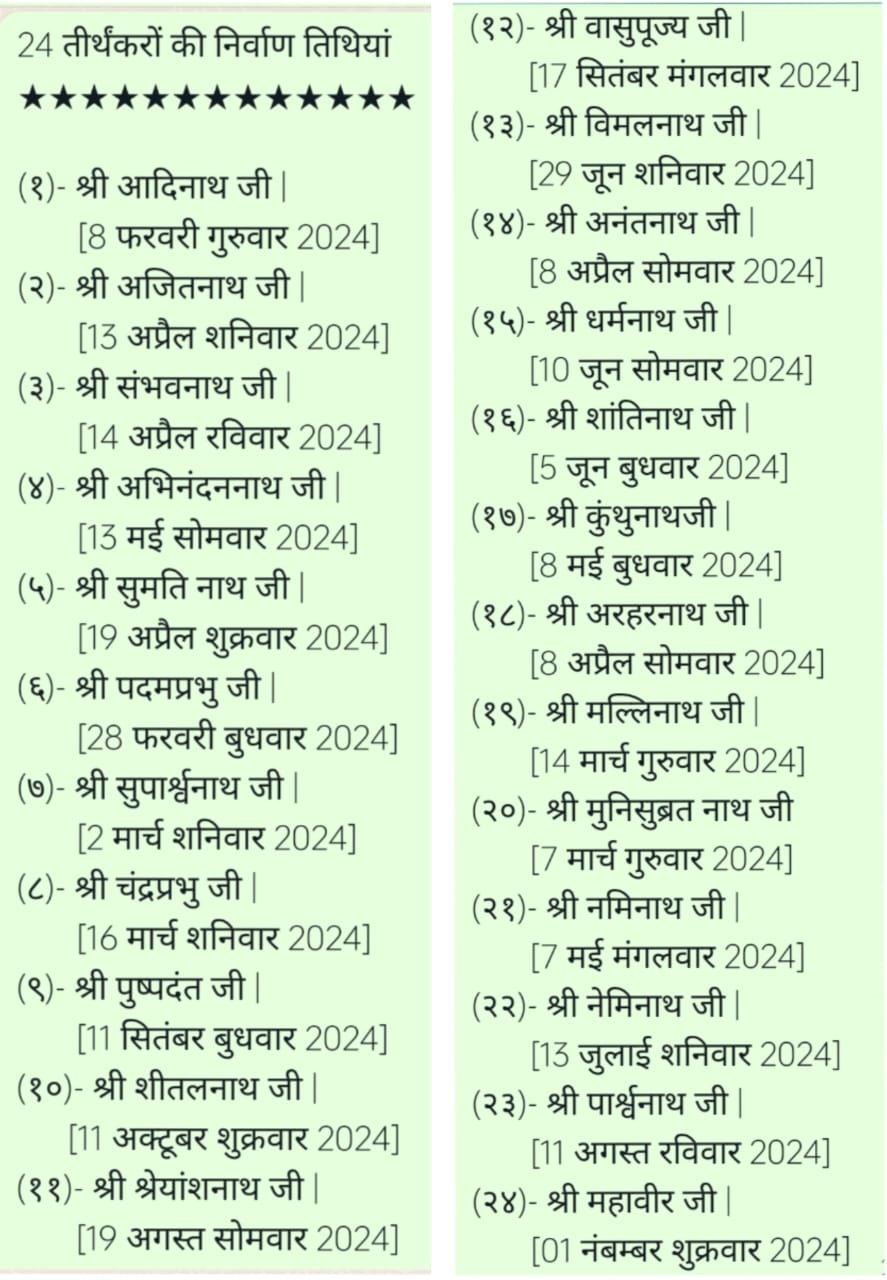 24 तीर्थंकरों की निर्वाण तिथियां
★★★★★★★★★★★★★
(१)- श्री आदिनाथ जी |
[8 फरवरी गुरुवार 2024]
(२)- श्री अजितनाथ जी |
[13 अप्रैल शनिवार 2024]
(३)- श्री संभवनाथ जी |
[14 अप्रैल रविवार 2024]
(४)- श्री अभिनंदननाथ जी |
[13 मई सोमवार 2024]
(५)- श्री सुमति नाथ जी |
[19 अप्रैल शुक्रवार 2024]
(६)- श्री पदमप्रभु जी |
[28 फरवरी बुधवार 2024]
(७)- श्री सुपार्श्वनाथ जी |
[2 मार्च शनिवार 2024]
(८)- श्री चंद्रप्रभु जी |
[16 मार्च शनिवार 2024]
(९)- श्री पुष्पदंत जी |
[11 सितंबर बुधवार 2024]
(१०)- श्री शीतलनाथ जी |
[11 अक्टूबर शुक्रवार 2024]
(११)- श्री श्रेयांशनाथ जी |
[19 अगस्त सोमवार 2024]
(१२)- श्री वासुपूज्य जी |
[17 सितंबर मंगलवार 2024]
(१३)- श्री विमलनाथ जी |
[29 जून शनिवार 2024]
(१४)- श्री अनंतनाथ जी |
[8 अप्रैल सोमवार 2024]
(१५)- श्री धर्मनाथ जी |
[10 जून सोमवार 2024]
(१६)- श्री शांतिनाथ जी |
[5 जून बुधवार 2024]
(१७)- श्री कुंथुनाथजी |
[8 मई बुधवार 2024]
(१८)- श्री अरहरनाथ जी |
[8 अप्रैल सोमवार 2024]
(१९)- श्री मल्लिनाथ जी |
[14 मार्च गुरुवार 2024]
(२०)- श्री मुनिसुब्रत नाथ जी
[7 मार्च गुरुवार 2024]
(२१)- श्री नमिनाथ जी |
[7 मई मंगलवार 2024]
(२२)- श्री नेमिनाथ जी |
[13 जुलाई शनिवार 2024]
(२३)- श्री पार्श्वनाथ जी |
[11 अगस्त रविवार 2024]
(२४)- श्री महावीर जी |
[01 नंबम्बर शुक्रवार 2024]